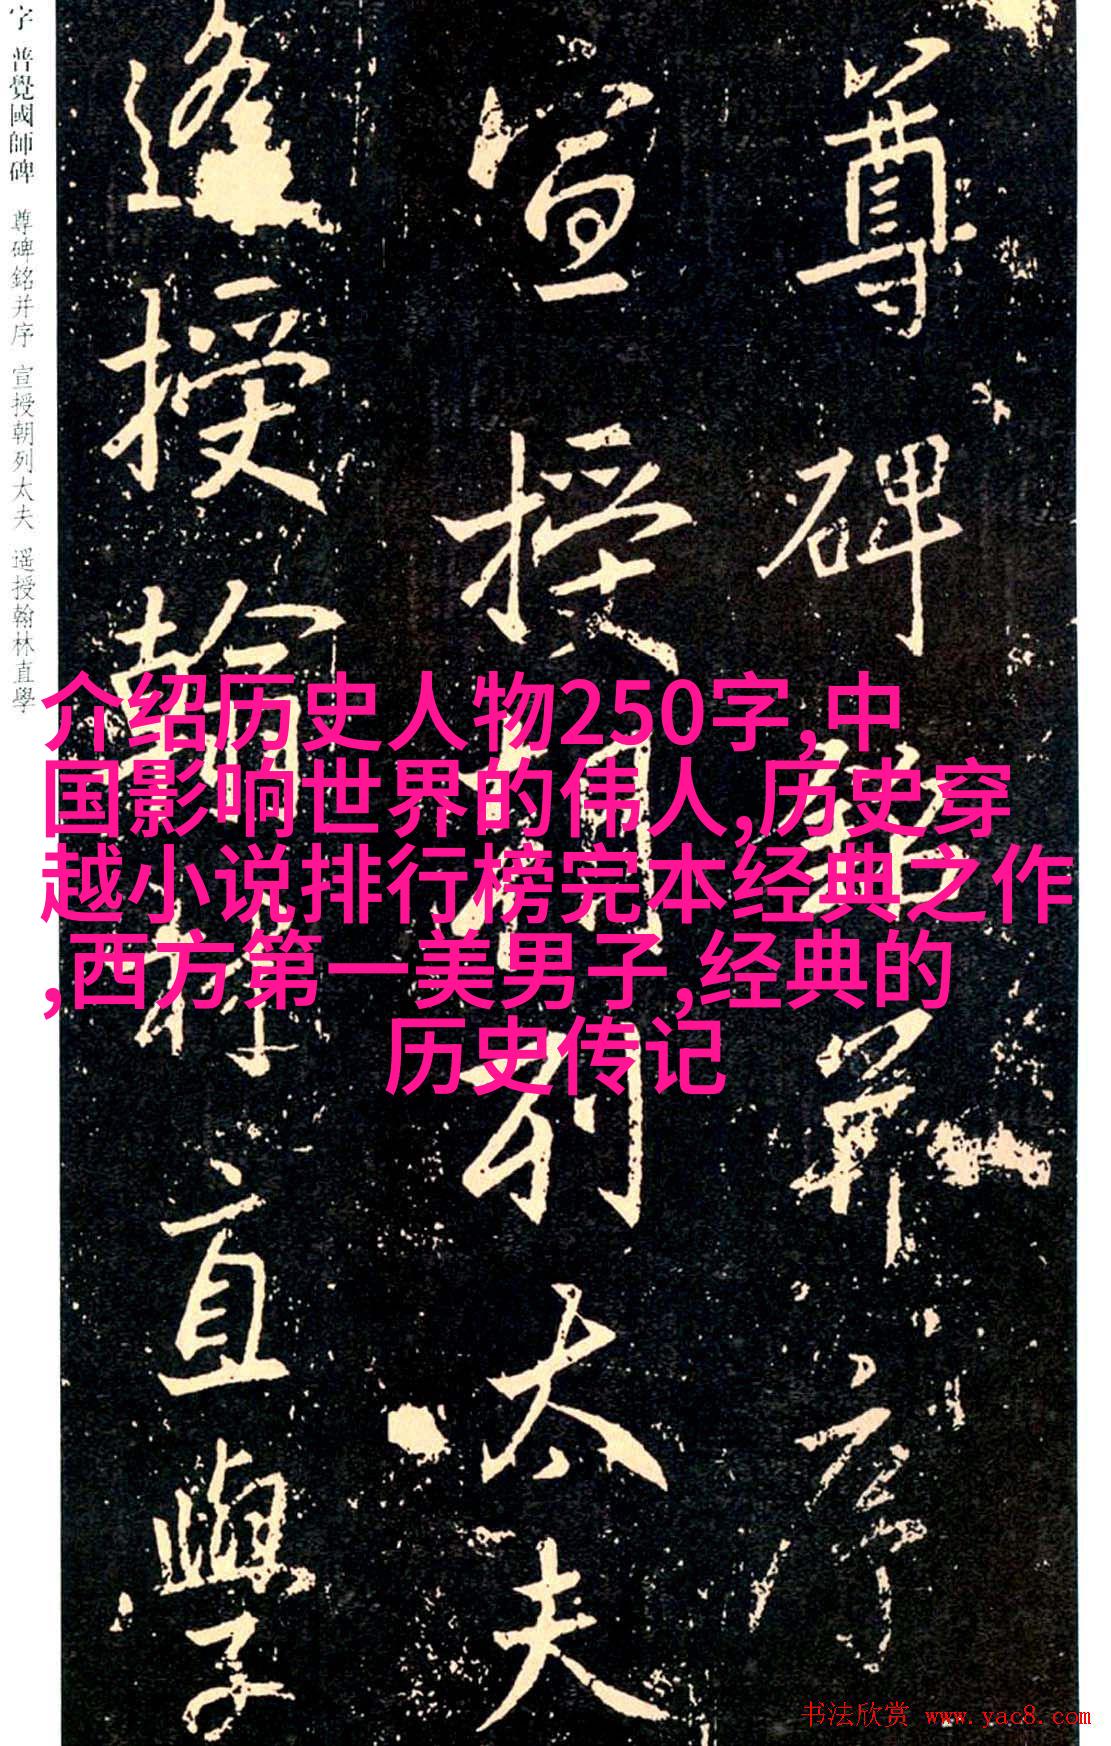 字 普覺國師碑 尊碑銘并序 宣授朝列太夫 遥授翰林直學
尊碑銘并序
宣授朝列太夫
遥授翰林直學
介绍历史人物250字,中
国影响世界的伟人,历史穿
越小说排行榜完本经典之作
,西方第一美男子,经典的
历史传记
书法欣赏 www.yac8.com